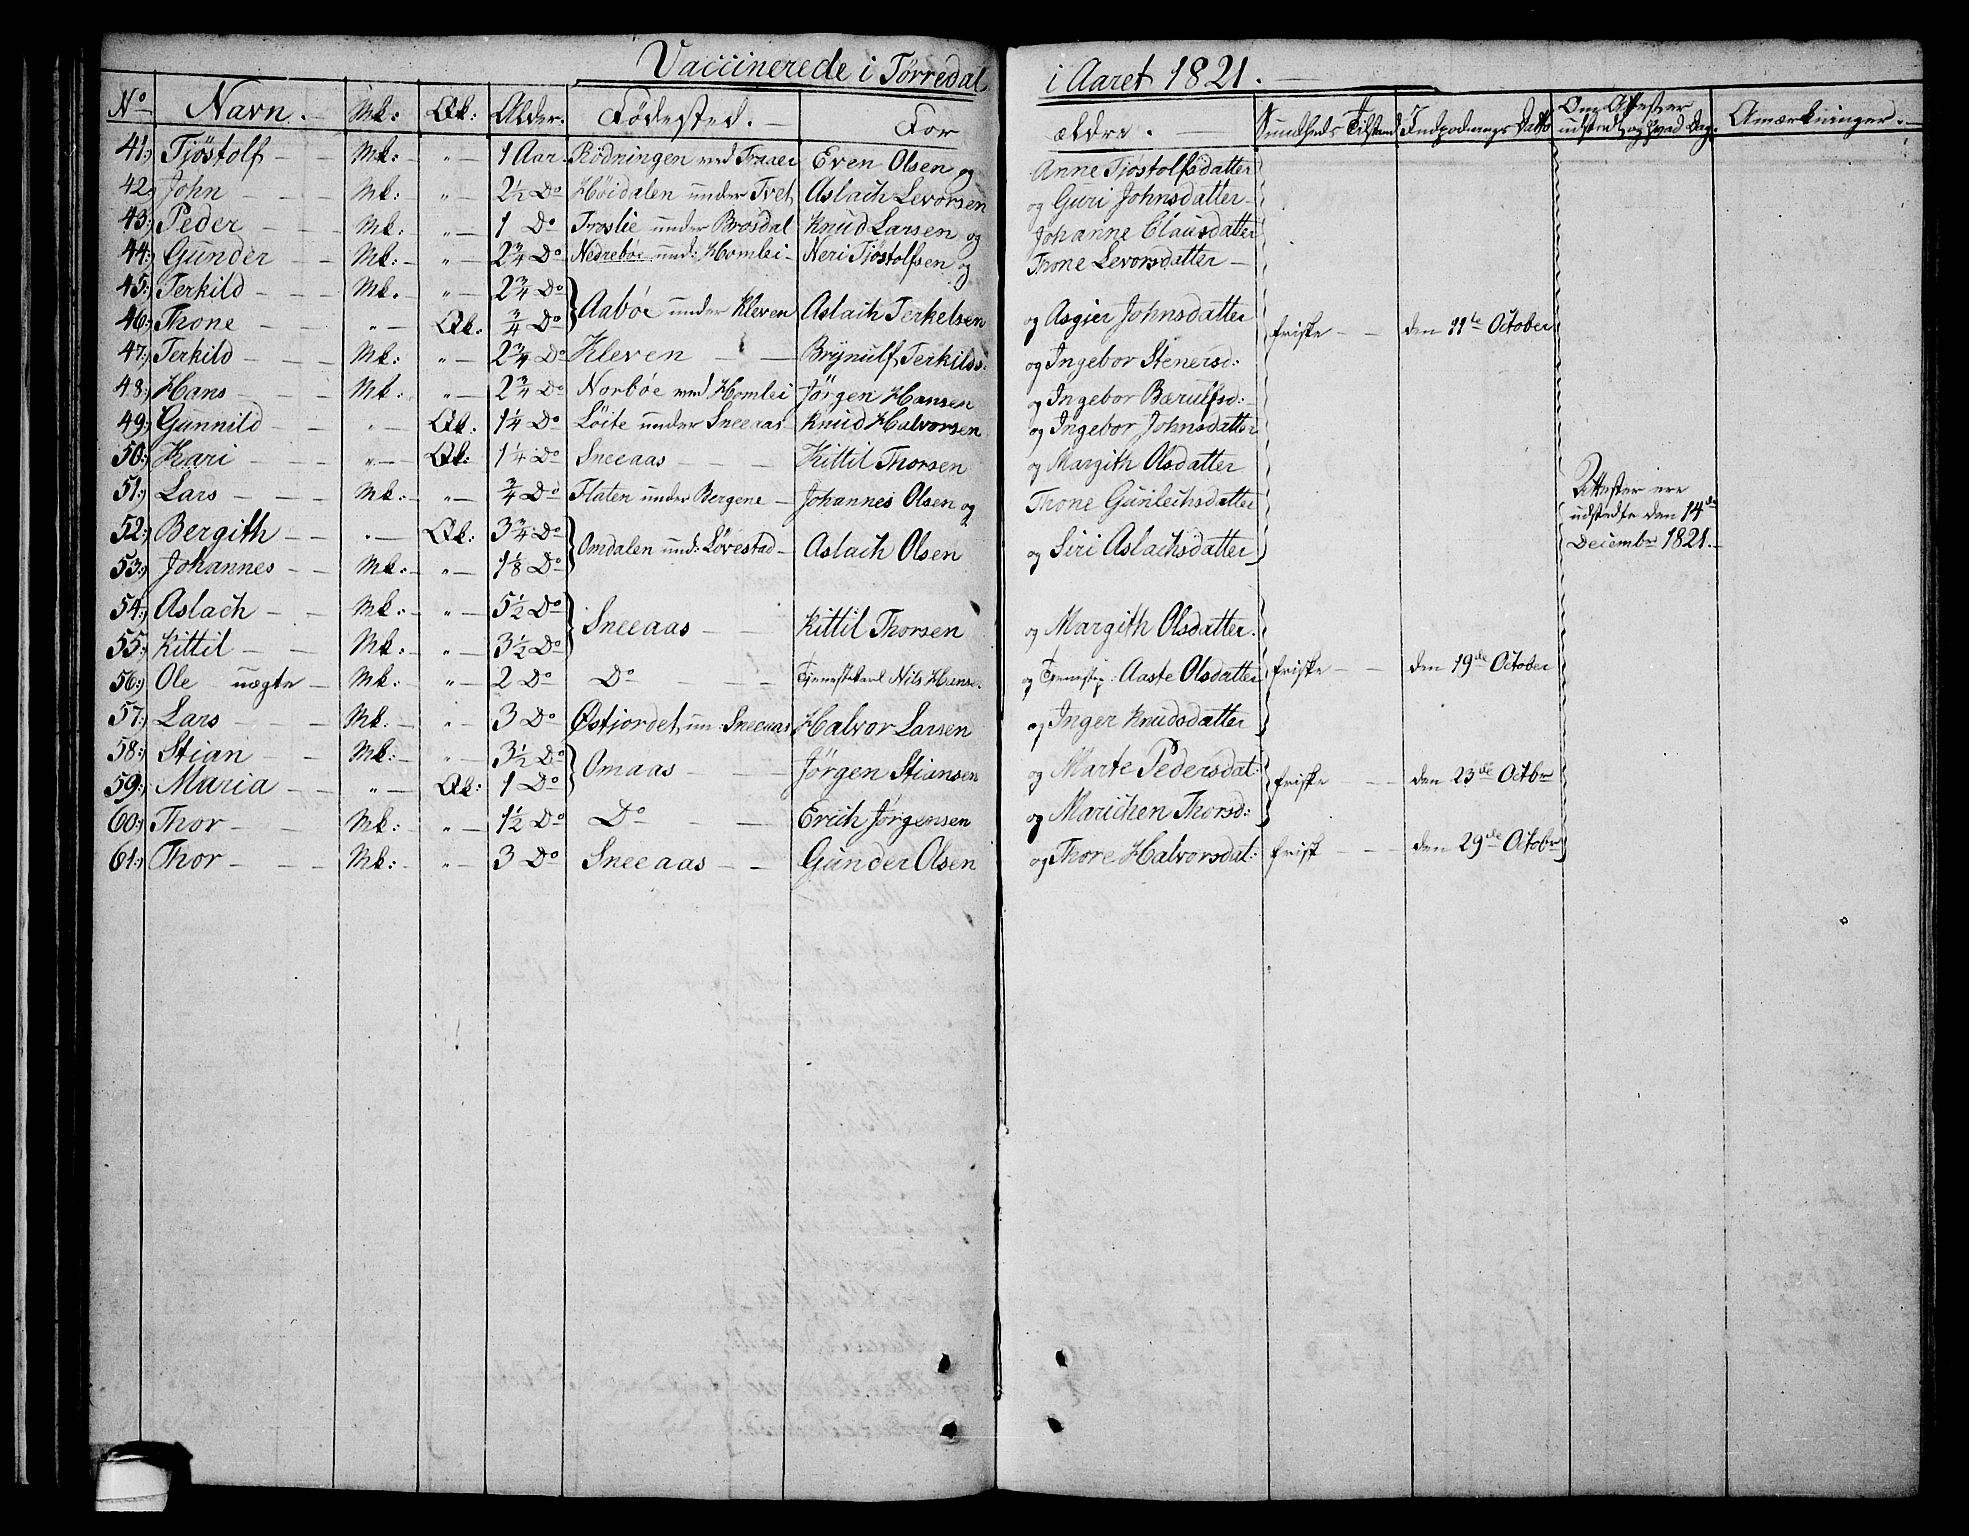 Vaccinerede i Tørredal i Aaret 1821.
No Navn. Mk: Qk: Alder. Fødested. For ældre. Sundheds Tilstand Indpodnings Datto Om Attester udstædt og hvad Dag. Anmærkninger.
41:) Tjöstolf Mk: " 1 Aar Rödningen ved Traaer Even Olsen og Anne Tjöstolfsdatter
42) John Mk: " 2½ Do Höidalen under Tvet Aslach Levorsen og Guri Johnsdatter
43:) Peder Mk: " 1 Do Troslie under Brosdal Knud Larsen og Johanne Clausdatter
44:) Gunder Mk: " 2¾ Do Nedrebøe und: Homlei Neri Tjöstolfsen og Thone Levorsdatter
45:) Terkild Mk. " 2¾ Do
46:) Thone " Qk: ¾ Do Aabøe under Kleven Aslach Terkelsen og Asgier Johnsdatter friske den 11te October
47:) Terkild Mk: " 2¾ Do Kleven Brynulf Terkilds: og Ingebor Stenersd:
48:) Hans Mk: " 2¾ Do Norbøe ved Homlei Jørgen Hansen og Ingebor Bærulfsd:
49:) Gunnild " Qk: 1¼ Do Löite under Sneeaas Knud Halvorsen og Ingebor Johnsdatter
50:) Kari " Qk: 1¼ Do Sneeaas Kittil Thorsen og Margith Olsdatter
51:) Lars Mk: " ¾ Do Flaten under Bergene Johannes Olsen og Thone Gunlechsdatter
52:) Bergith " Qk: 3¾ Do Omdalen und: Lövestad Aslach Olsen og Siri Aslachsdatter
53:) Johannes Mk: " 1⅛ Do
Attester ere
udstædte den 14de
Decembr 1821.
54:) Aslach Mk: " 5½ Do
55:) Kittil Mk: " 3½ Do Sneeaas Kittil Thorsen og Margith Olsdatter.
56:) Ole uægte Mk: " 2 Do Do Tjenestekarl Nils Hans: og Tjenestep: Aaste Olsdatter friske den 19de October
57:) Lars Mk. " 3 Do Østjordet un: Sneeaas Halvor Larsen og Inger Knudsdatter
58:) Stian Mk: " 3½ Do
59:) Maria " Qk: 1 Do Omaas Jörgen Stiansen og Marte Pedersdat: friske den 23de Octbr
60:) Thor Mk: " 1½ Do Do Erich Jørgensen og Marichen Thorsd:
61:) Thor Mk: " 3 Do Sneeaas Gunder Olsen og Thore Halvorsdat: frisk den 29de Octobr